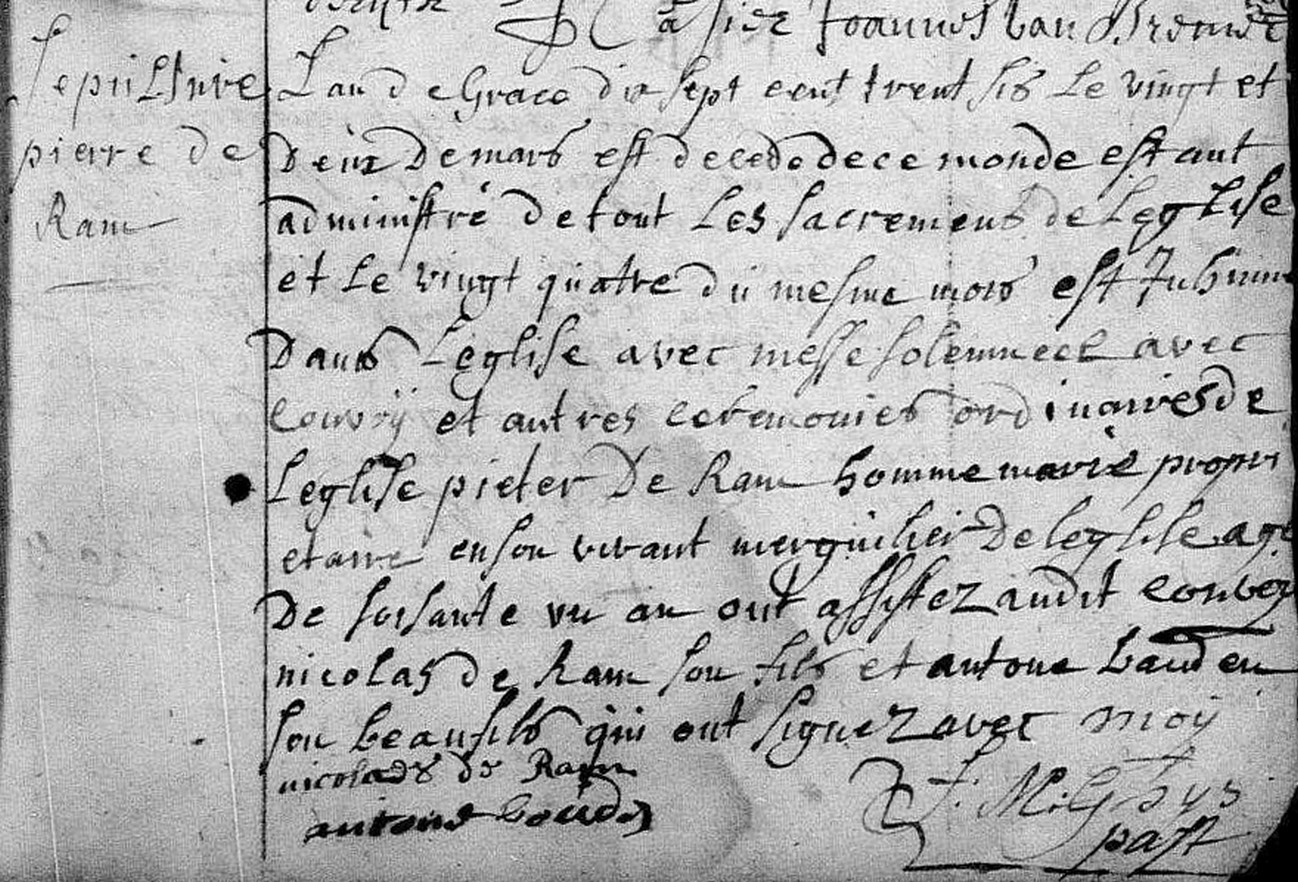 paster Joannes Van
Sepulture
pierre de
Ram
L'an de Grace dix sept cent trent sis Le vingt et
Deux De mars est decedé de ce monde estant
administré de tout Les sacrements de Leglise
et Le vingt quatre du mesme mois est Inhumé
Dans Leglise avec messe solemnele avec
convoÿ et autres ceremonies ordinaires de
Leglise pieter De Ram homme marié propri
etaire en son vivant merguilier De leglise agé
De soisante un an ont assistez audit convoy
nicolas de Ram son fils et antone bauden
son beaufils qui ont signez avec moÿ
nicolads de Ram
antone
J. M. Ghys
past